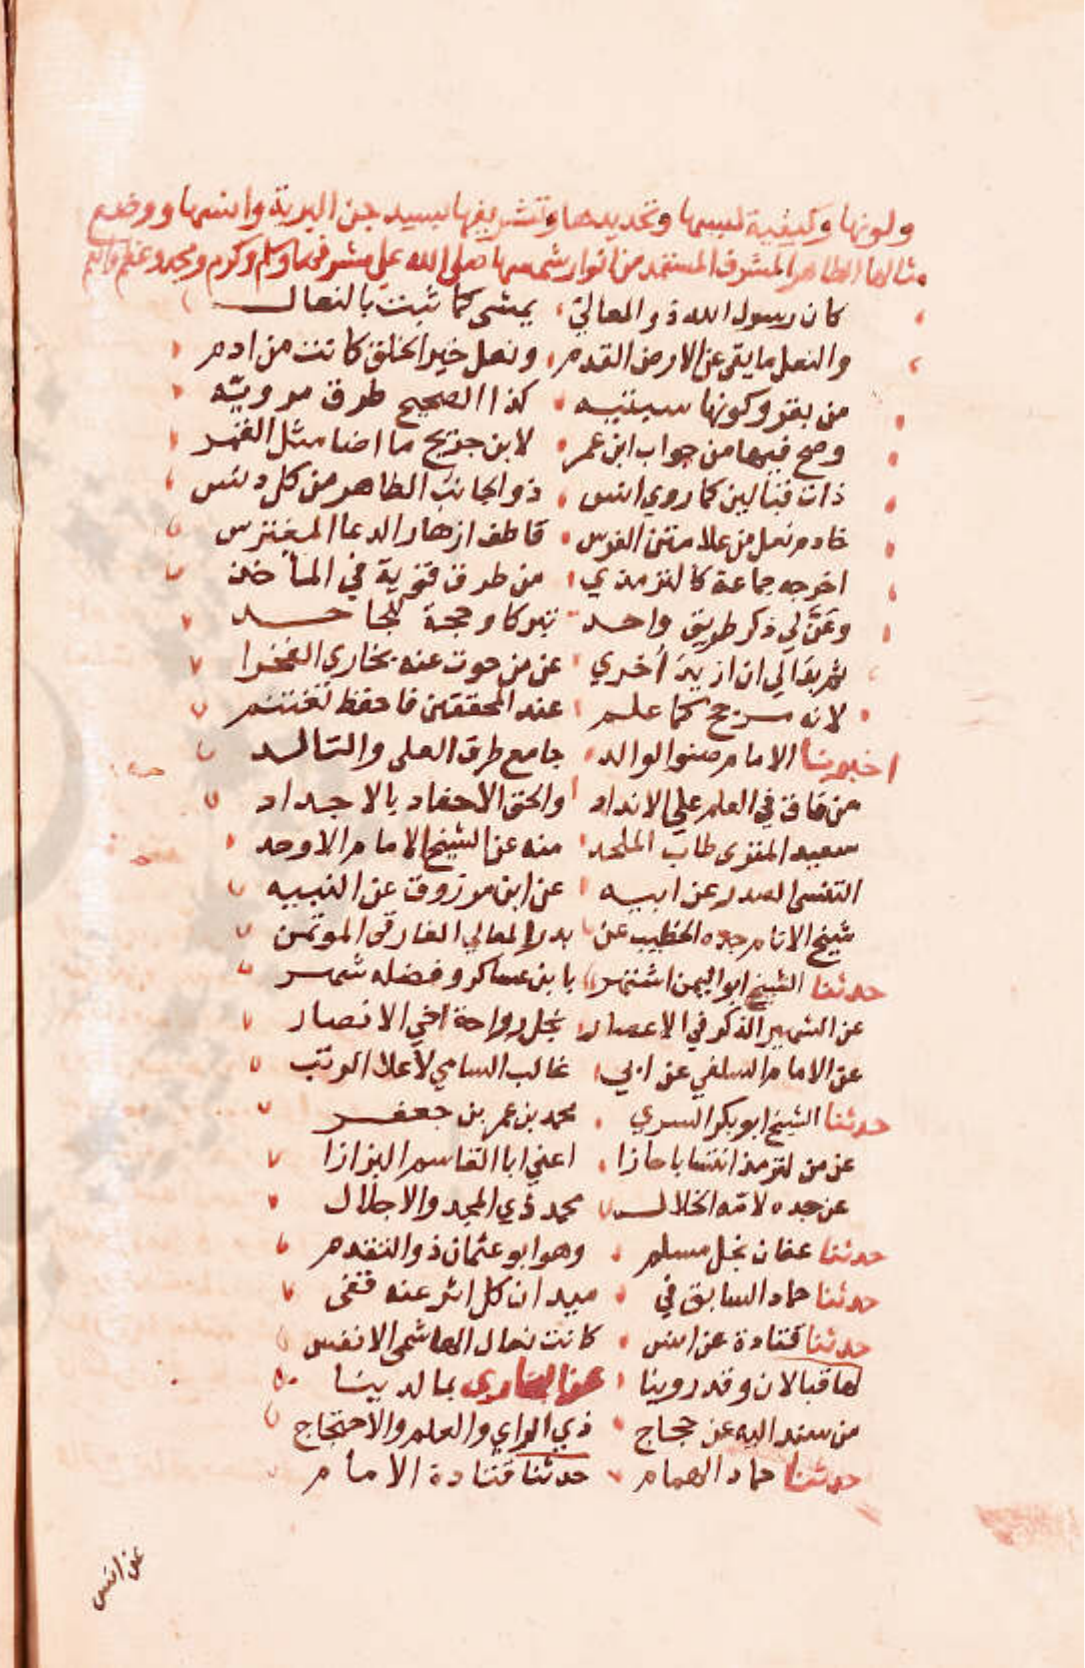 ولونها وكيفية لبسها وتحديدها وتشريفها بسيد جن البرية وانسها ووضع
مثالها الطاهر المشرف المستمد من انوار شمسها صلى الله على مشرفها وسلم وكرم ومجد وعظم
كان رسول الله ذو المعالي يمشى كما ثبت بالنعال
والنعل ما يقى عن الارض القدم ونعل خير الخلق كانت من ادم
من بقر وكونها سبتيه كذا الصحيح طرق مرويّه
وصح فيها من جواب ابن عمر لابن جريج ما اضا مثل القمر
ذات قبالين كما روي انس ذو الجانب الطاهر من كل دنس
خادم نعل من علا متن الفرس قاطف ازهار الدعا المغترس
اخرجه جماعة كالترمذي من طرق قوية في المأخذ
وعَنَّ لي ذكر طريق واحد تبركا وحجة للجاحد
ثم بدا لي ان ازيد اخري عن من حوت عنه بخاري الفخرا
لانه مرجح كما علم عند المحققين فاحفظ تغتنم
اخبرنا الامام صنوا لوالد جامع طرق العلى والتالد
من فاق في العلم علي الانداد والحق الاحفاد بالاجداد
سعيد المقرى طاب الملحد منه عن الشيخ الامام الاوحد
التنسى الصدر عن ابيه عن ابن مرزوق عن النبيه
شيخ الانام جده الخطيب عن بدر المعالي الفارقى الموتمن
حدثنا الشيخ ابو اليمن اشتهر بابن عساكر وفضله شهر
عن الشهير الذكر في الاعصار نجل رواحة اخي الانصار
عن الامام السلفي عن ابي غالب السامي لأعلا الرتب
حدثنا الشيخ ابو بكر السري محمد بن عمر بن جعفر
عن من لترمذ انتسابا حازا اعني ابا القاسم البزازا
عن جده لامّه الخلال محمد ذي المجد والاجلال
حدثنا عفان نجل مسلم وهو ابو عثمان ذو التقدم
حدثنا حماد السابق في ميدان كل اثر عنه قفى
حدثنا قتادة عن انس كانت نعال الهاشمى الانفس
لها قبالان وقد روينا عن البخاري بما لدينا
من سند اليه عن حجاج ذي الراي والعلم والاحتجاج
حدثنا حماد الهمام حدثنا قتادة الامام
عن انس